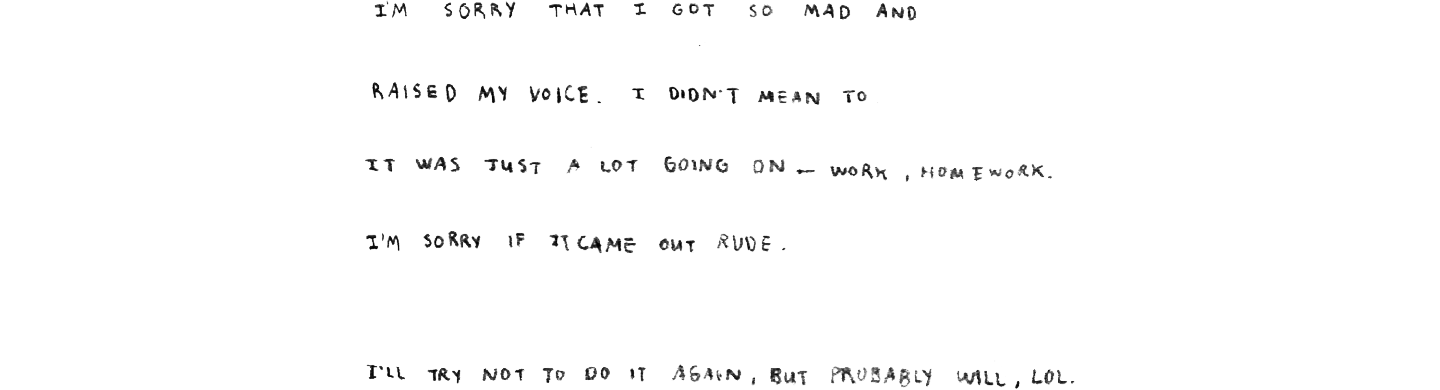 I'M SORRY THAT I GOT SO MAD AND
RAISED MY VOICE. I DIDN'T MEAN TO
IT WAS JUST A LOT GOING ON - WORK, HOMEWORK.
I'M SORRY IF IT CAME OUT RUDE.
I'LL TRY NOT TO DO IT AGAIN, BUT PROBABLY WILL, LOL.